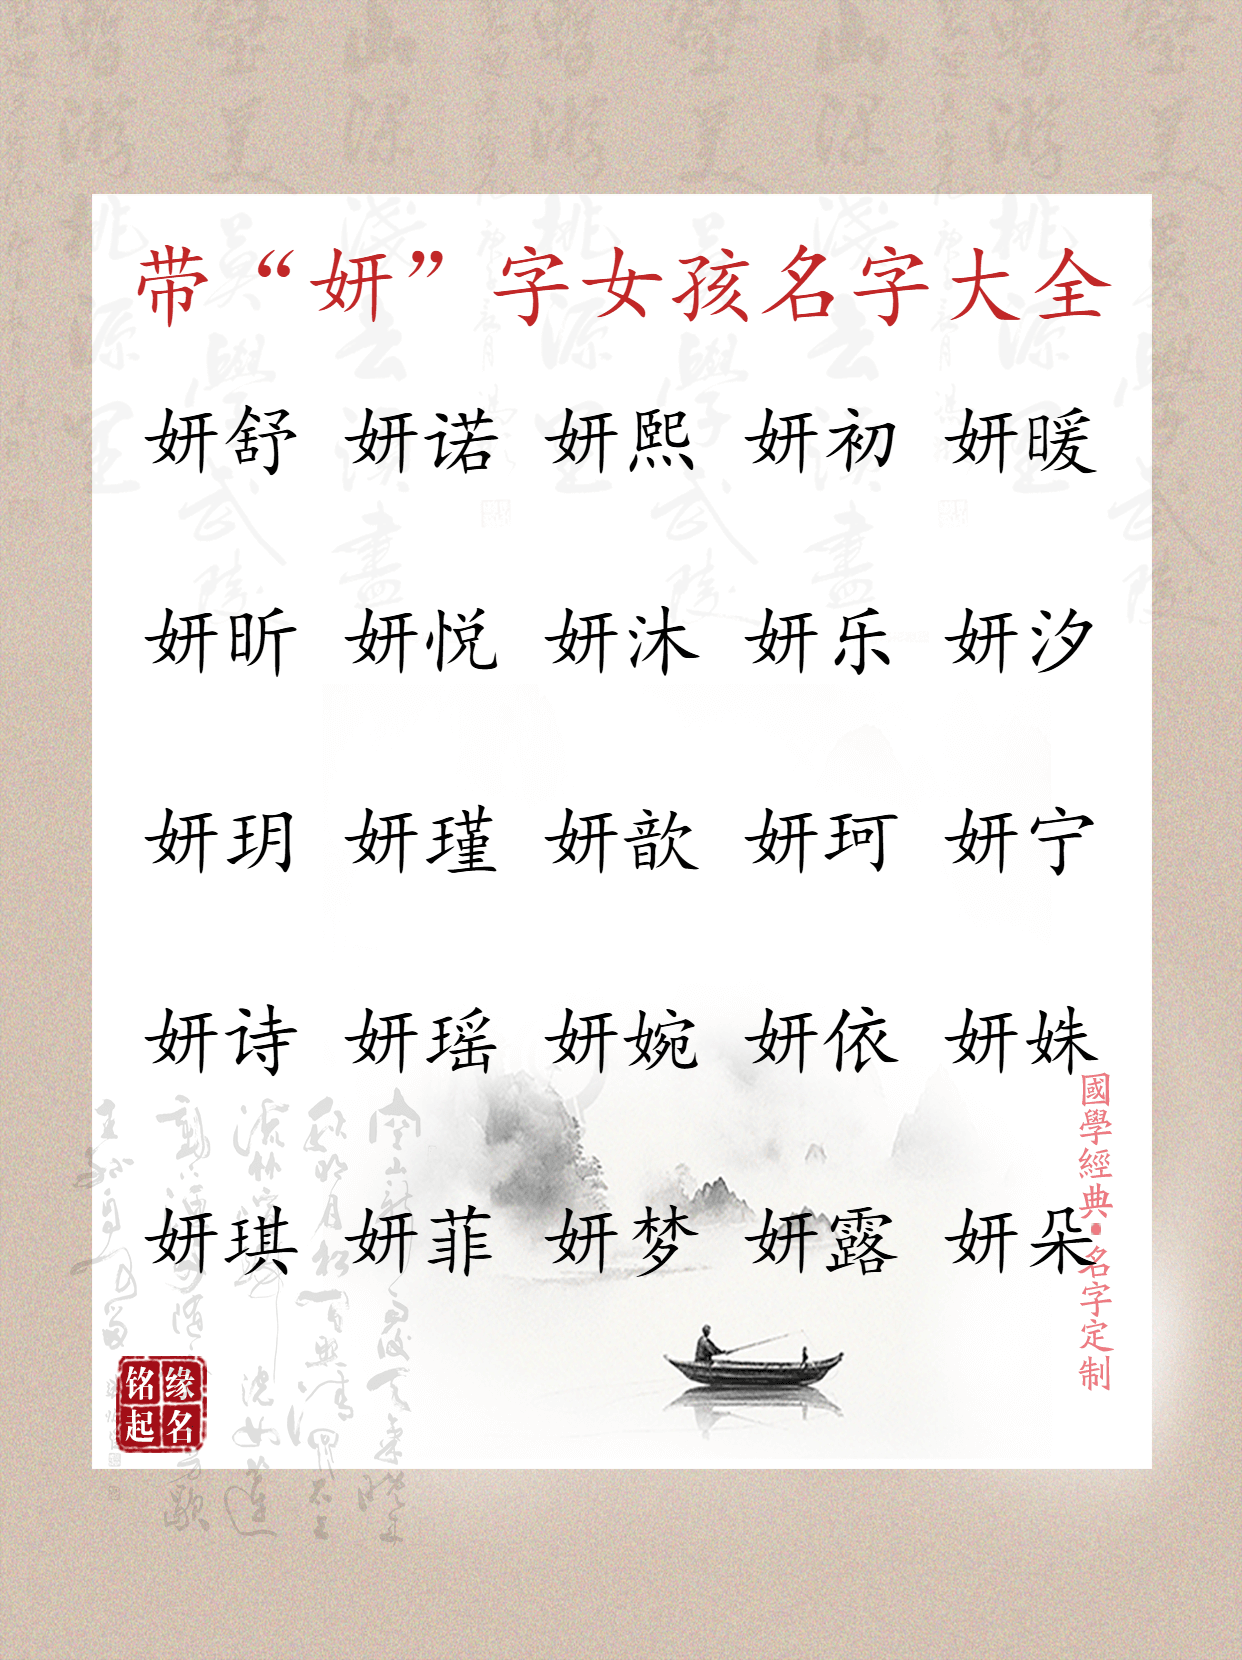 带“妍”字女孩名字大全
妍舒 妍诺 妍熙 妍初 妍暖
妍昕 妍悦 妍沐 妍乐 妍汐
妍玥 妍瑾 妍歆 妍珂 妍宁
妍诗 妍瑶 妍婉 妍依 妍姝
妍琪 妍菲 妍梦 妍露 妍朵
國學經典·名字定制
缘名
铭起